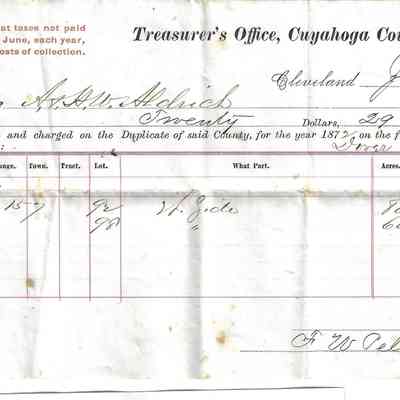 at taxes not paid
June, each year,
osts of collection.
Treasurer's Office, Cuyahoga Cou
Cleveland J
A. & H. W. Aldrich
Twenty Dollars, 29
and charged on the Duplicate of said County, for the year 1872, on the f
: Dover
nge. Town. Tract. Lot. What Part. Acres.
15 7 92 W. Side
98 "
F W Pel